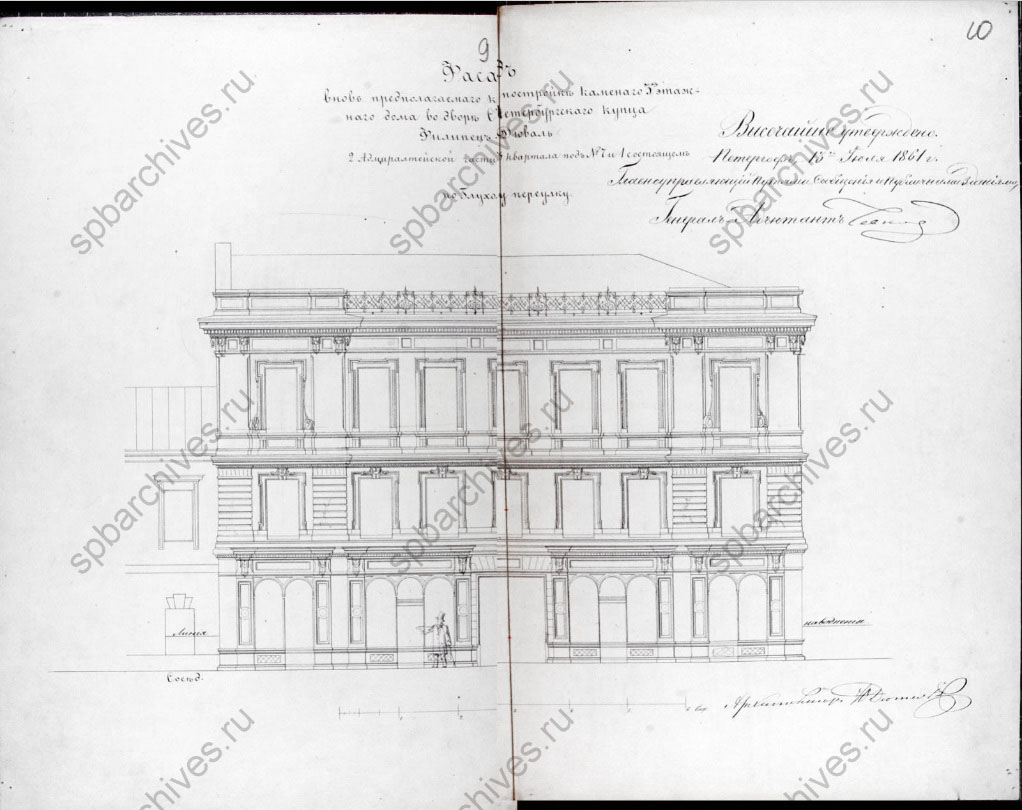 9
10
Фасадъ
вновь предполагаемаго къ постройкѣ каменаго 3хъ этаж-
наго дома во дворѣ С Петербургскаго купца
2 Адмиралтейской части квартала подъ № 7 и 1 состоящемъ
по Глухому переулку.
Высочайше утверждено.
Петергофъ 15 Іюля 1861 г.
Главноуправляющій Путями Сообщенія и Публичными Зданіями
Генералъ Адъютантъ
Линия
наводнения
Сосѣд.
Архитекторъ
spbarchives.ru
spbarchives.ru
spbarchives.ru
spbarchives.ru
spbarchives.ru
spbarchives.ru
spbarchives.ru
spbarchives.ru
spbarchives.ru